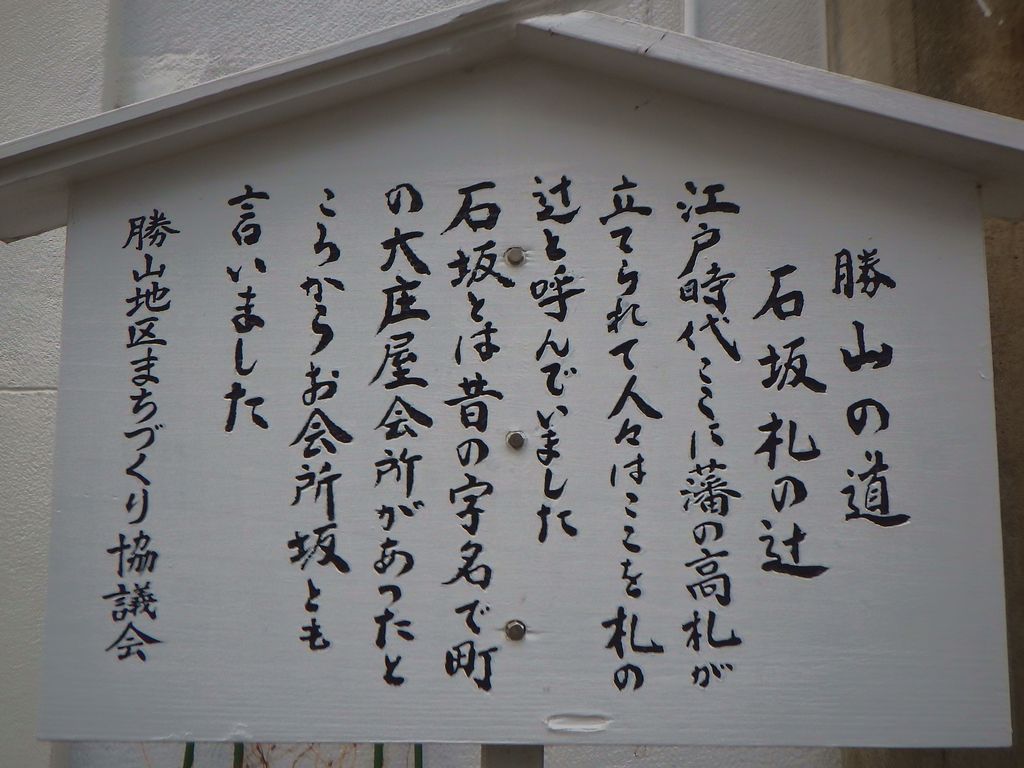 勝山の道
石坂札の辻
江戸時代ここに藩の高札が
立てられて人々はここを札の
辻と呼んでいました
石坂とは昔の字名で町
の大庄屋会所があったと
ころからお会所坂とも
言いました
勝山地区まちづくり協議会